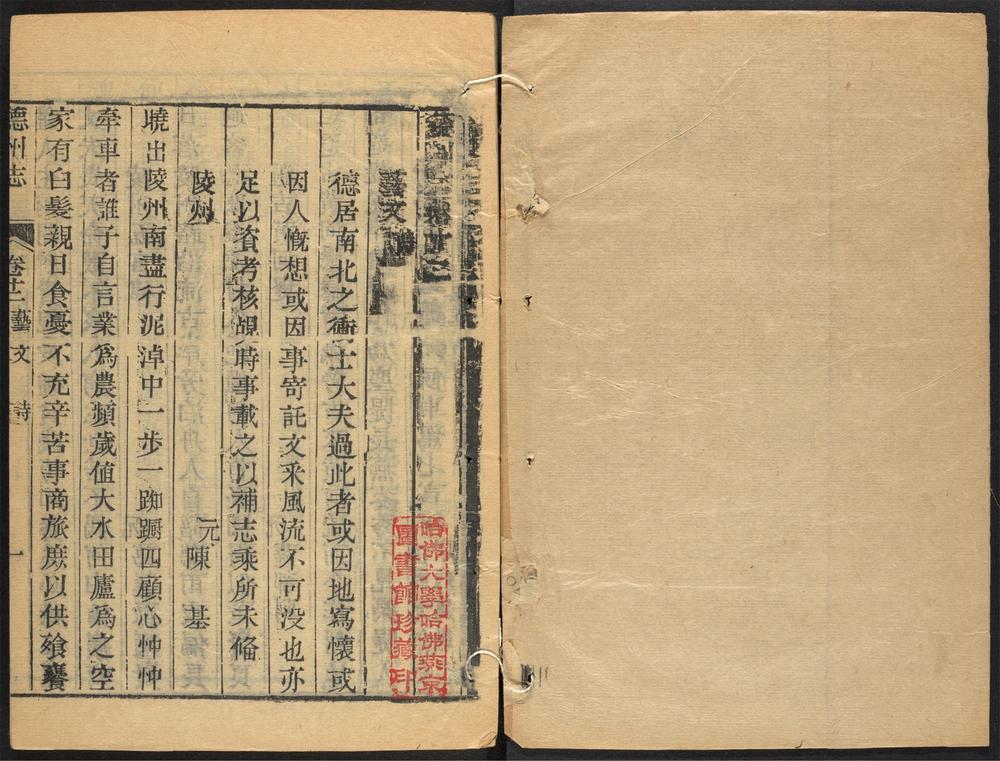 德州志卷十二
藝文
德居南北之衝士大夫過此者或因地寫懷或
因人慨想或因事寄託文采風流不可没也亦
足以資考核覘時事載之以補志乘所未備
陵州 元陳 基
曉出陵州南盡行泥淖中一步一踟躕四顧心忡忡
牽車者誰子自言業爲農頻歲值大水田廬爲之空
家有白髮親日食憂不充辛苦事商旅庶以供飱饔
德州志 卷十二 藝文 詩 一
哈佛大學哈佛燕京
圖書館珍藏印